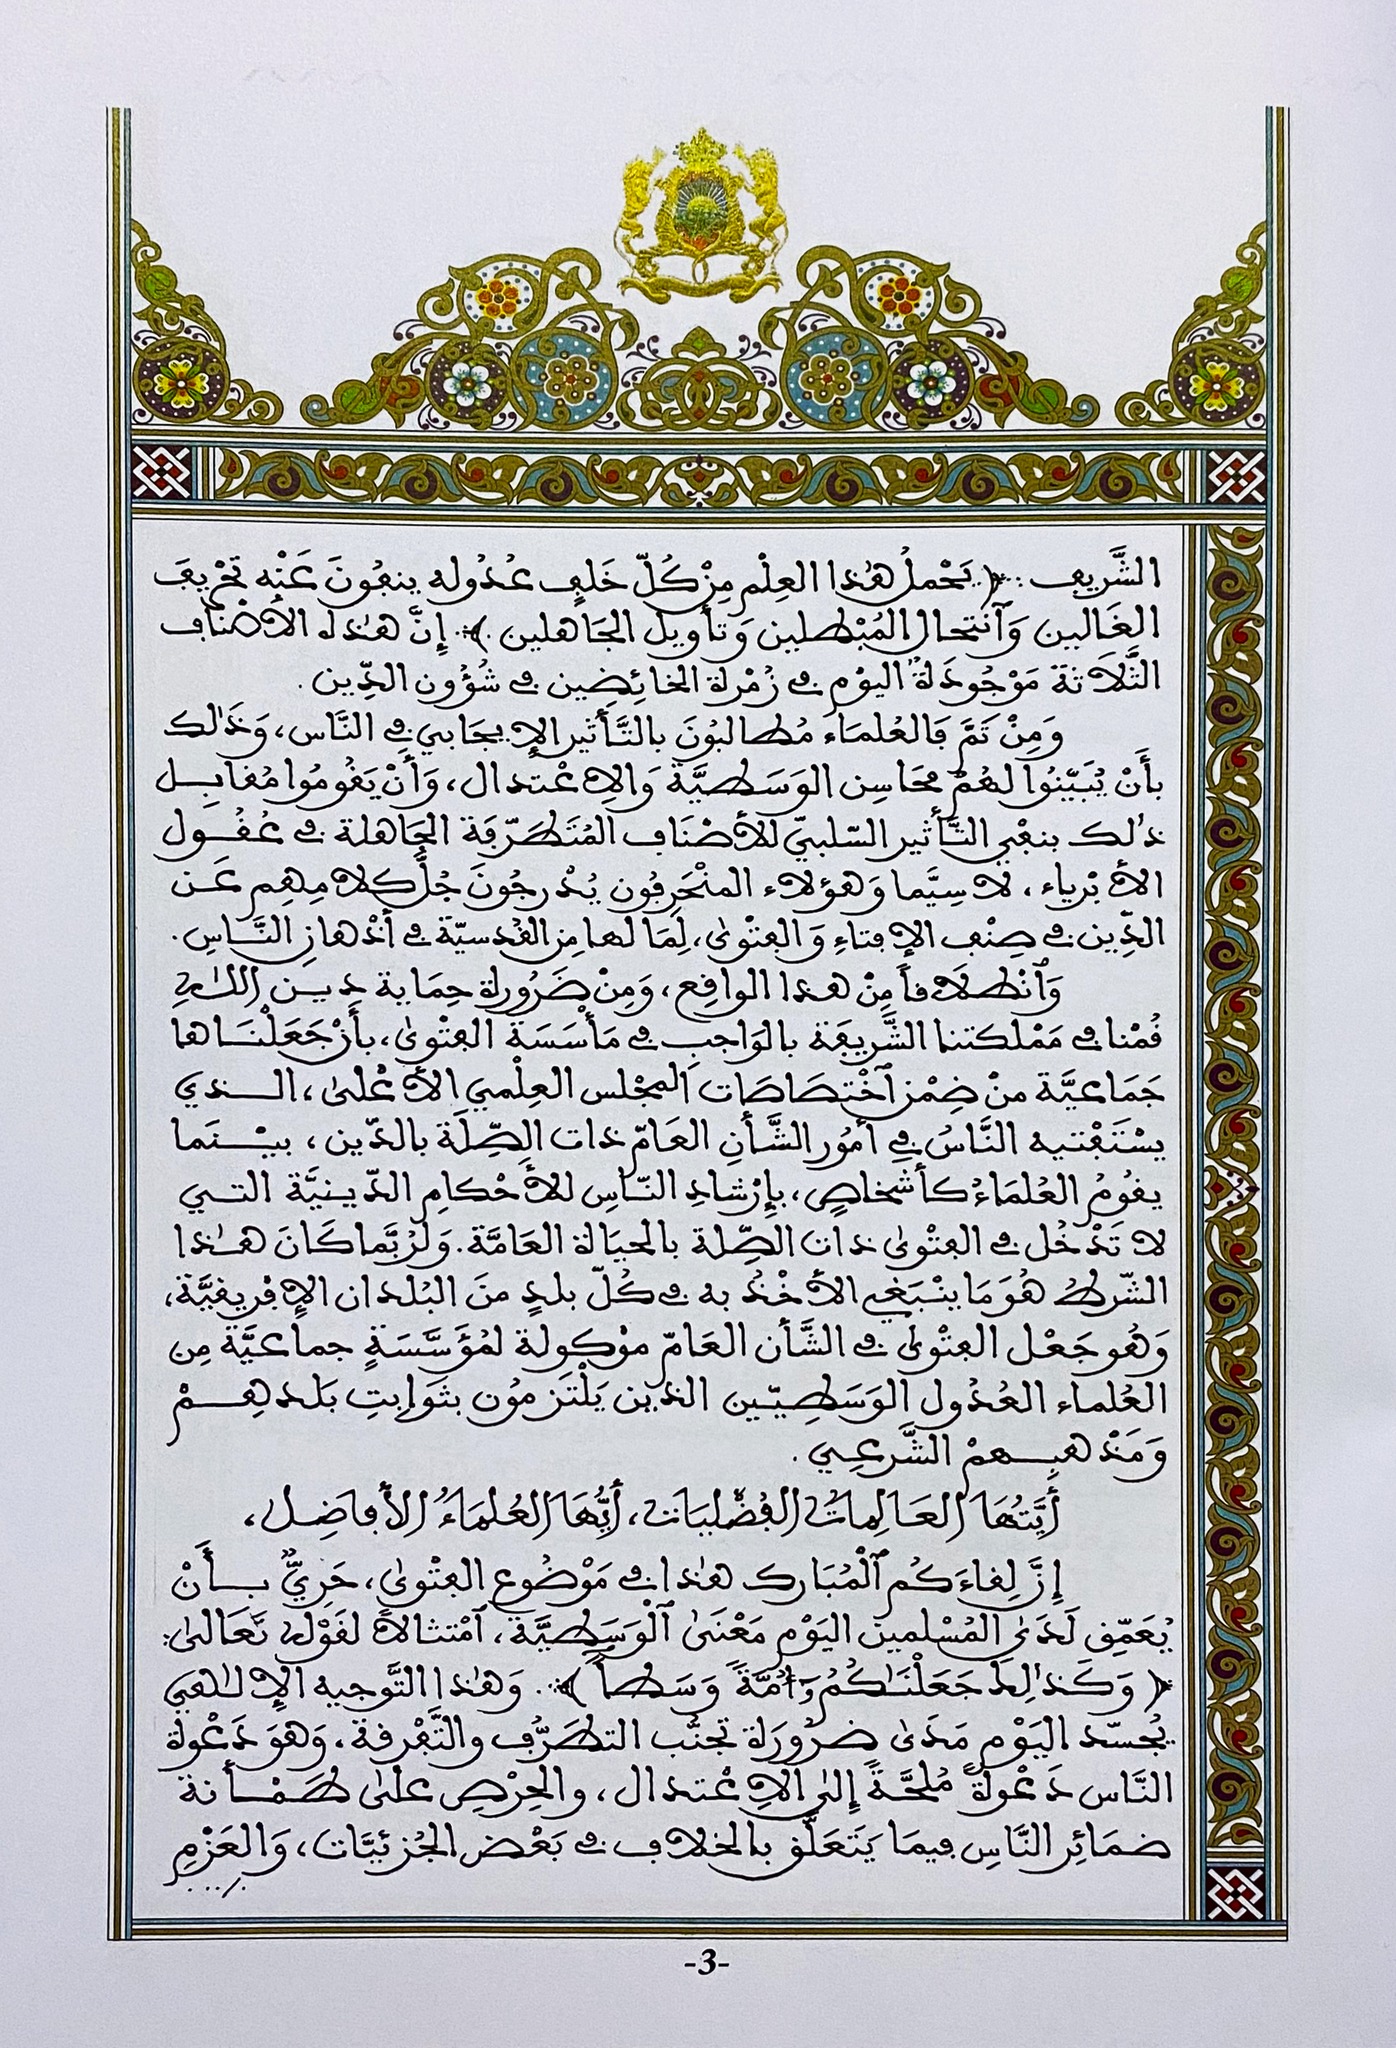 الشَّريف : ﴿ يَحْملُ هٰذا العِلْم مِنْ كُلّ خَلَفٍ عُدُوله ينفونَ عَنْه تحْريفَ
الغَالين وَٱنتحال المُبْطلين وَتأويل الجَاهلين ﴾. إنَّ هٰذه الأصْنافَ
الثَّلَاثة مَوْجُودَةٌ اليَوْم في زُمْرة الخائِضِين في شُؤُون الدِّين.
وَمِنْ ثَمَّ فَالعُلمَاء مُطالبُونَ بالتَّأثير الإيجَابي في النَّاس، وَذٰلك
بأَنْ يُبَيّنُوا لهُمْ محَاسِن الوَسَطيَّة وَالاعْتدال، وَأَنْ يَقُومُوا مُقَابِل
ذٰلك بنفْي التَّأثير السّلبيّ للأصْنَاف المُتَطَرّفَة الجَاهلة في عُقُول
الأبْرياء، لا سِيَّما وَهؤلاء المنْحَرِفُون يُدْرجُونَ جُلَّ كلامهِم عَن
الدِّين في صِنْف الإفتاءِ وَالفتْوىٰ، لِمَا لها مِن القُدسيّة في أذْهانِ النَّاسِ.
وَٱنْطلَاقاً مِنْ هذا الواقِع، وَمِنْ ضَرُورة حِمَاية دين اللهِ
قُمْنا في مَمْلكتنا الشَّريفَة بالوَاجبِ في مَأْسَسَة الفتْوىٰ، بأنْ جَعَلْنَاها
جَمَاعيَّة منْ ضِمْن ٱخْتِصَاصَات المجْلس العِلْمي الأعْلىٰ، الذي
يسْتَفْتيه النَّاسُ في أمُور الشَّأنِ العَامّ ذات الصِّلَة بالدّين، بيْنَما
يقُومُ العُلمَاءُ كأشْخاصٍ، بإرْشادِ النّاسِ للأَحْكامِ الدّينيَّة التي
لا تَدْخُل في الفتْوىٰ ذات الصِّلة بالحيَاة العَامَّة. وَلَرُبَّما كَانَ هٰذا
الشّرطُ هُوَ مَا ينْبَغي الأخْذُ به في كُلّ بلدٍ منَ البُلدان الإفْريقيَّة،
وَهُو جَعْل الفتْوىٰ في الشَّأن العَامّ موْكولة لمُؤَسَّسَةٍ جماعيَّة مِن
العُلماء العُدُول الوَسَطِيّين الذين يَلْتَزمُون بثَوَابتِ بَلدهِمْ
وَمَذْهبِهمْ الشَّرعِي.
أيَّتُهَا العَالِمَاتُ الفُضْليَات، أيُّهَا العُلمَاءُ الأفاضِل،
إنَّ لِقاءَكُم ٱلْمُبَارك هٰذا في مَوْضُوع الفتْوىٰ، حَرِيٌّ بأَنْ
يُعَمّق لَدَى المُسْلمينَ اليَوْم مَعْنَى ٱلْوَسَطِيَّة، ٱمْتثالاً لقَوْلهِ تَعَالىٰ:
﴿ وَكَذٰلِكَ جَعَلْنَاكُمُۥٓ أُمَّةً وَسَطاً ﴾. وَهٰذا التَّوجيه الإلٰهي
يُجسّد اليَوْم مَدَىٰ ضرُورَة تجنُّب التطرُّف والتَّفْرقة، وَهوَ دَعْوة
النَّاس دَعْوةً مُلحَّةً إلى الاعْتدال، والحِرْصِ علىٰ طمْأنة
ضمَائِر النَّاسِ فيمَا يَتَعَلَّق بالخلاف في بَعْض الجُزئيَّات، وَالعَزْمِ
-3-